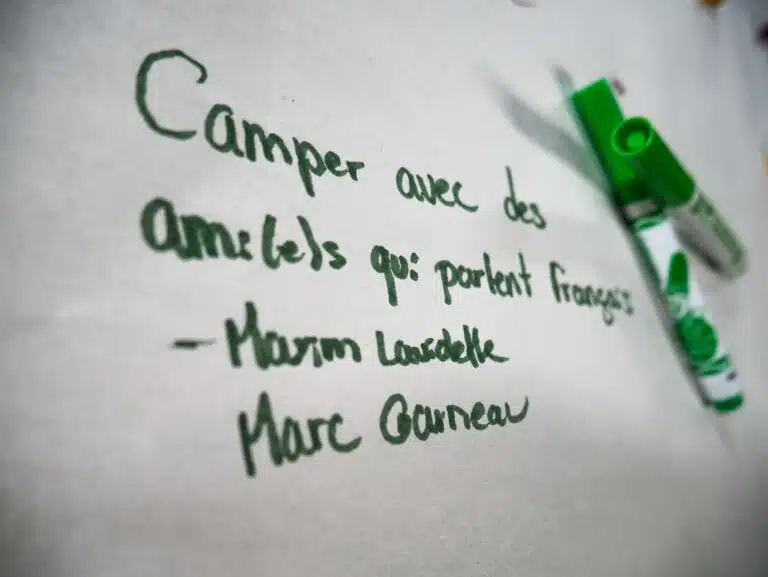 Camper avec des
ami(e)s qui parlent français
- Maxim Lavidelle
Marc Garneau